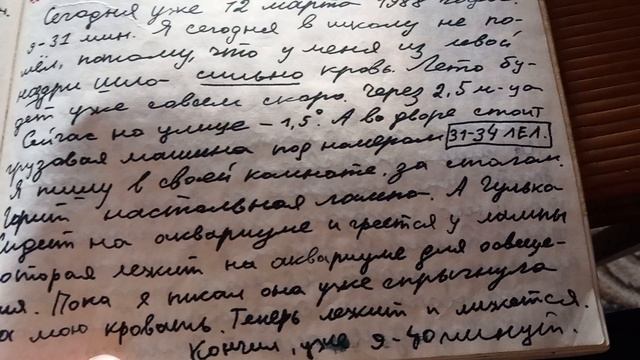 Сегодня уже 12 марта 1988 года.
я-31 мин. Я сегодня в школу не по-
шёл, потому, что у меня из левой
ноздри шла сильно кровь. Лето бу-
дет уже совсем скоро. Через 2,5 м-ца
Сейчас на улице -1,5°. А во дворе стоит
грузовая машина под номером 31-34 ЛЕЛ.
Я пишу в своей комнате. за столом.
Горит настольная лампа. А Гулька
сидит на аквариуме и греется у лампы
которая лежит на аквариуме для освеще-
ния. Пока я писал она уже спрыгнула
на мою кровать. Теперь лежит и лижется.
Кончил, уже я-40 минут.